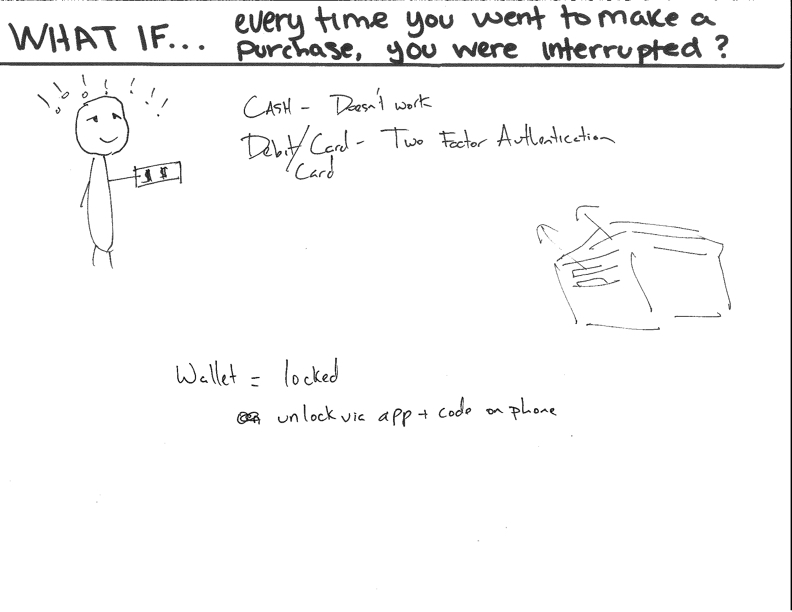 WHAT IF... every time you went to make a
purchase, you were interrupted?
CASH - Doesn't work
Debit/Card - Two Factor Authentication
Card
$ $
Wallet = locked
unlock via app + code on phone